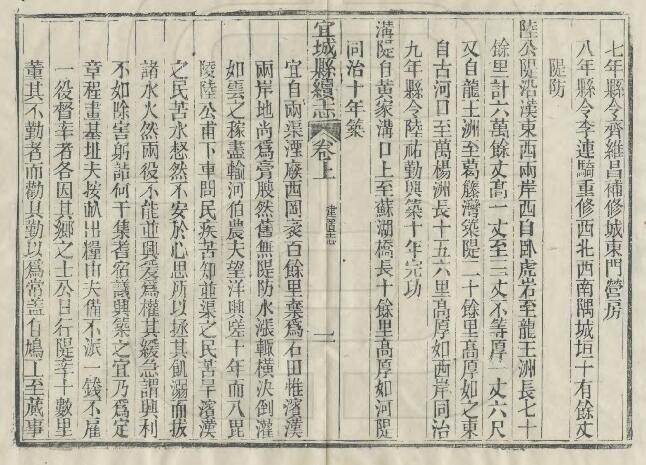 七年縣令齊維昌補修城東門營房
八年縣令李連騎重修西北西南隅城垣十有餘丈
隄防
陸公隄沿漢東西兩岸西自臥虎岩至龍王洲長七十
餘里計六萬餘丈高一丈至三丈不等厚一丈六尺
又自龍王洲至葛藤灣築隄二十餘里高厚如之東
自古河口至萬楊洲長十五六里高厚如西岸同治
九年縣令陸祐勤興築十年完功
溝隄自黃家溝口上至蘇湖橋長十餘里高厚如河隄
同治十年築
宜城縣續志 卷上 建置志 二
宜自兩渠湮廢西岡袤百餘里棄爲石田惟濱漢
兩岸地尚爲膏腴然舊無隄防水漲輒橫決倒灌
如雲之稼盡輸河伯農夫望洋興嗟十年而八毘
陵陸公甫下車問民疾苦知並渠之民苦旱濱漢
之民苦水愁然不安於心思所以拯其飢溺而拔
諸水火然兩役不能並興爰爲權其緩急謂興利
不如除害躬詣何干集耆宿議興築之宜乃爲定
章程畫基址夫按畝出糧由夫備不派一錢不雇
一役督率者各因其鄉之士公日行隄率十數里
董其不勤者而勸其勤以爲常蓋自鳩工至蕆事